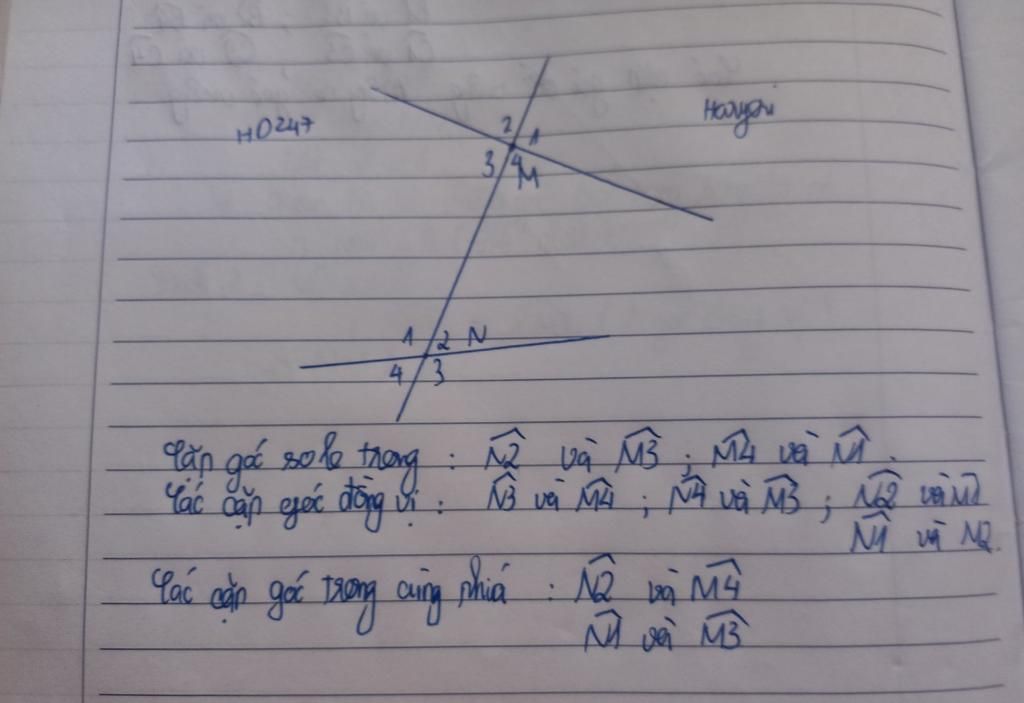 HD247
Hangōi
2
1
3
4
M
1
2
N
4
3
Cặp góc so le trong : N̂2 và M̂3 ; M̂4 và N̂1 .
Các cặp góc đồng vị : N̂3 và M̂4 ; N̂4 và M̂3 ; N̂2 và M̂1
N̂1 và M̂2.
Các cặp góc trong cùng phiá : N̂2 và M̂4
N̂1 và M̂3